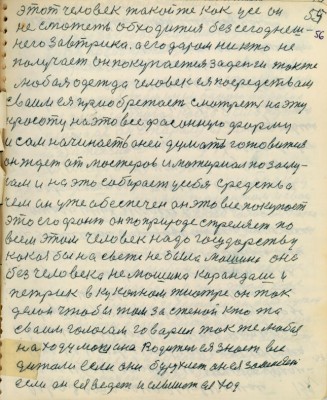 59
56
этот человек такой же как все он
не сможеть обходится без сегоднеш-
него завтрика. а его даром никто не
получает он покупается за деньги также
любая одежда человек ея посредствам
своим ея приобретает смотреть на эту
красоту на это все фасонную форму
и сам начинаеть о ней думать готовится
он ждет от мостеров и материал по заслу-
гам и на это собирает у себя средства
чем он уже обеспечен он это все покупает
это его фонт он по природе стреляет по
всем этом человек надо государству
какая бы на свете не была машина она
без человека не машина карандаш и
петрик в кукольном театре он так
делал чтобы там за стеной кто то
своим голосам говарил так же любая
на ходу машина водитель ея знает все
детали если они
если он ея ведет и слышит ея ход